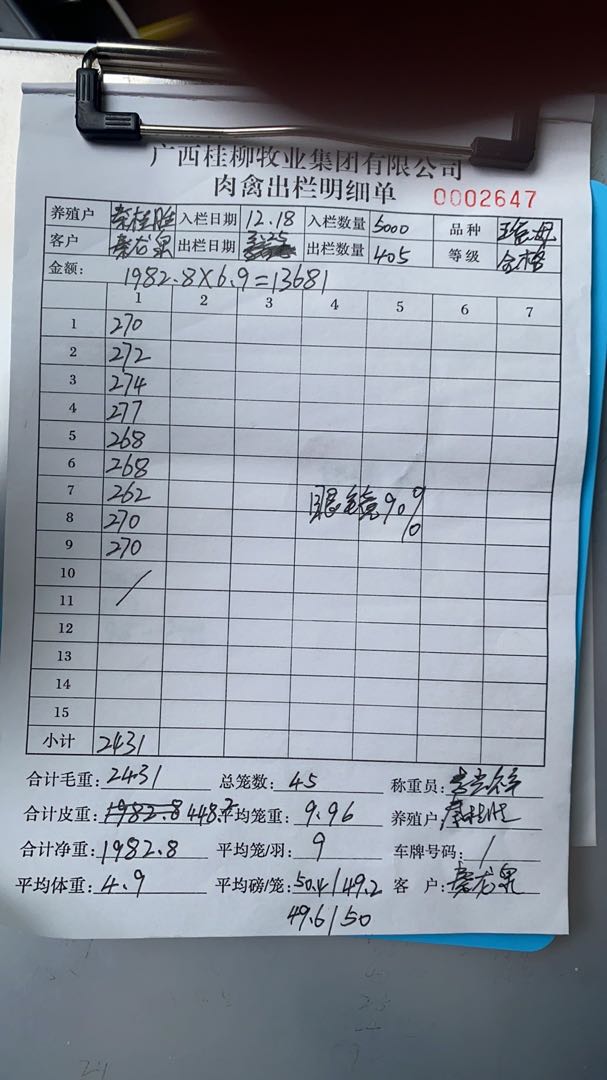 广西桂柳牧业集团有限公司
肉禽出栏明细单 0002647
养殖户 秦桂胜 入栏日期 12.18 入栏数量 5000 品种
客户 秦龙泉 出栏日期 3.25 出栏数量 405 等级 合格
金额: 1982.8×6.9=13681
1 2 3 4 5 6 7
1 270
2 272
3 274
4 277
5 268
6 268
7 262 眼镜90%
8 270
9 270
10 /
11
12
13
14
15
小计 2431
合计毛重: 2431 总笼数: 45 称重员:
合计皮重: 1982.8 448.2 平均笼重: 9.96 养殖户: 秦桂胜
合计净重: 1982.8 平均笼/羽: 9 车牌号码: /
平均体重: 4.9 平均磅/笼: 50.4/49.2 客 户: 秦龙泉
49.6/50